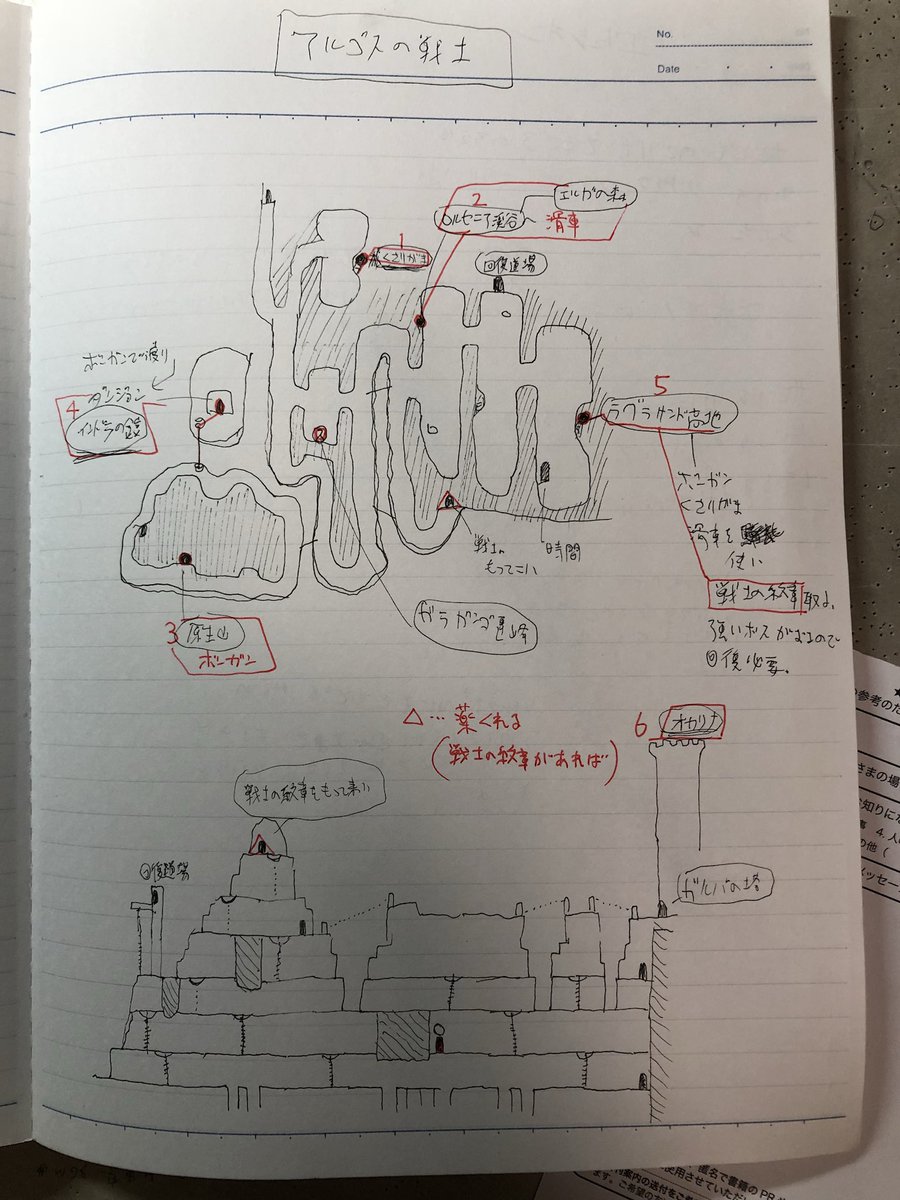 アルゴスの戦士
No.
Date
エルガの森
2
ロルセニア渓谷へ
滑車
1
くさりがま
回復道場
ボーガンで渡り
ダンジョン
4
インドラの鏡
5
ラグラサンド高地
ボーガン
くさりがま
滑車を
使い
戦士の紋章取る、
強いボスがおるので
回復必要。
戦士の
もってこい
時間
ガラガンダ連峰
3
原生山
ボーガン
△…薬くれる
(戦士の紋章があれば)
6
オカリナ
戦士の紋章をもって来い
回復道場
ガルバの塔
参考のた
さまの場
知りにな
4. 人
の他(
メッセー
匿名で書籍のPR
使用させていた